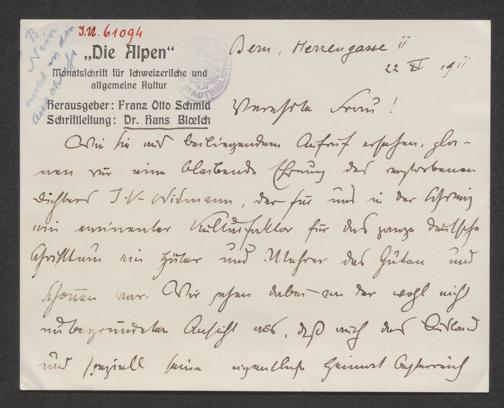 I.N. 61094
B.
Nein
„Die Alpen"
Monatschrift für schweizerische und
allgemeine Kultur
Herausgeber: Franz Otto Schmid
Schriftleitung: Dr. Hans Bloesch
Bern, Herrengasse 11
22 XI 1911
Verehrte Frau!
Wie Sie aus beiliegendem Aufruf ersehen, pla-
nen wir eine bleibende Ehrung des verstorbenen
Dichters J. V. Widmann, der für uns in der Schweiz
ein eminenter Kulturfaktor für das ganze deutsche
Schrifttum ein Hüter und Mehrer des Guten und
Schönen war. Wir gehen dabei von der wohl nicht
unbegründeten Ansicht aus, daß auch das Ausland
und speziell seine eigentliche Heimat Oesterreich